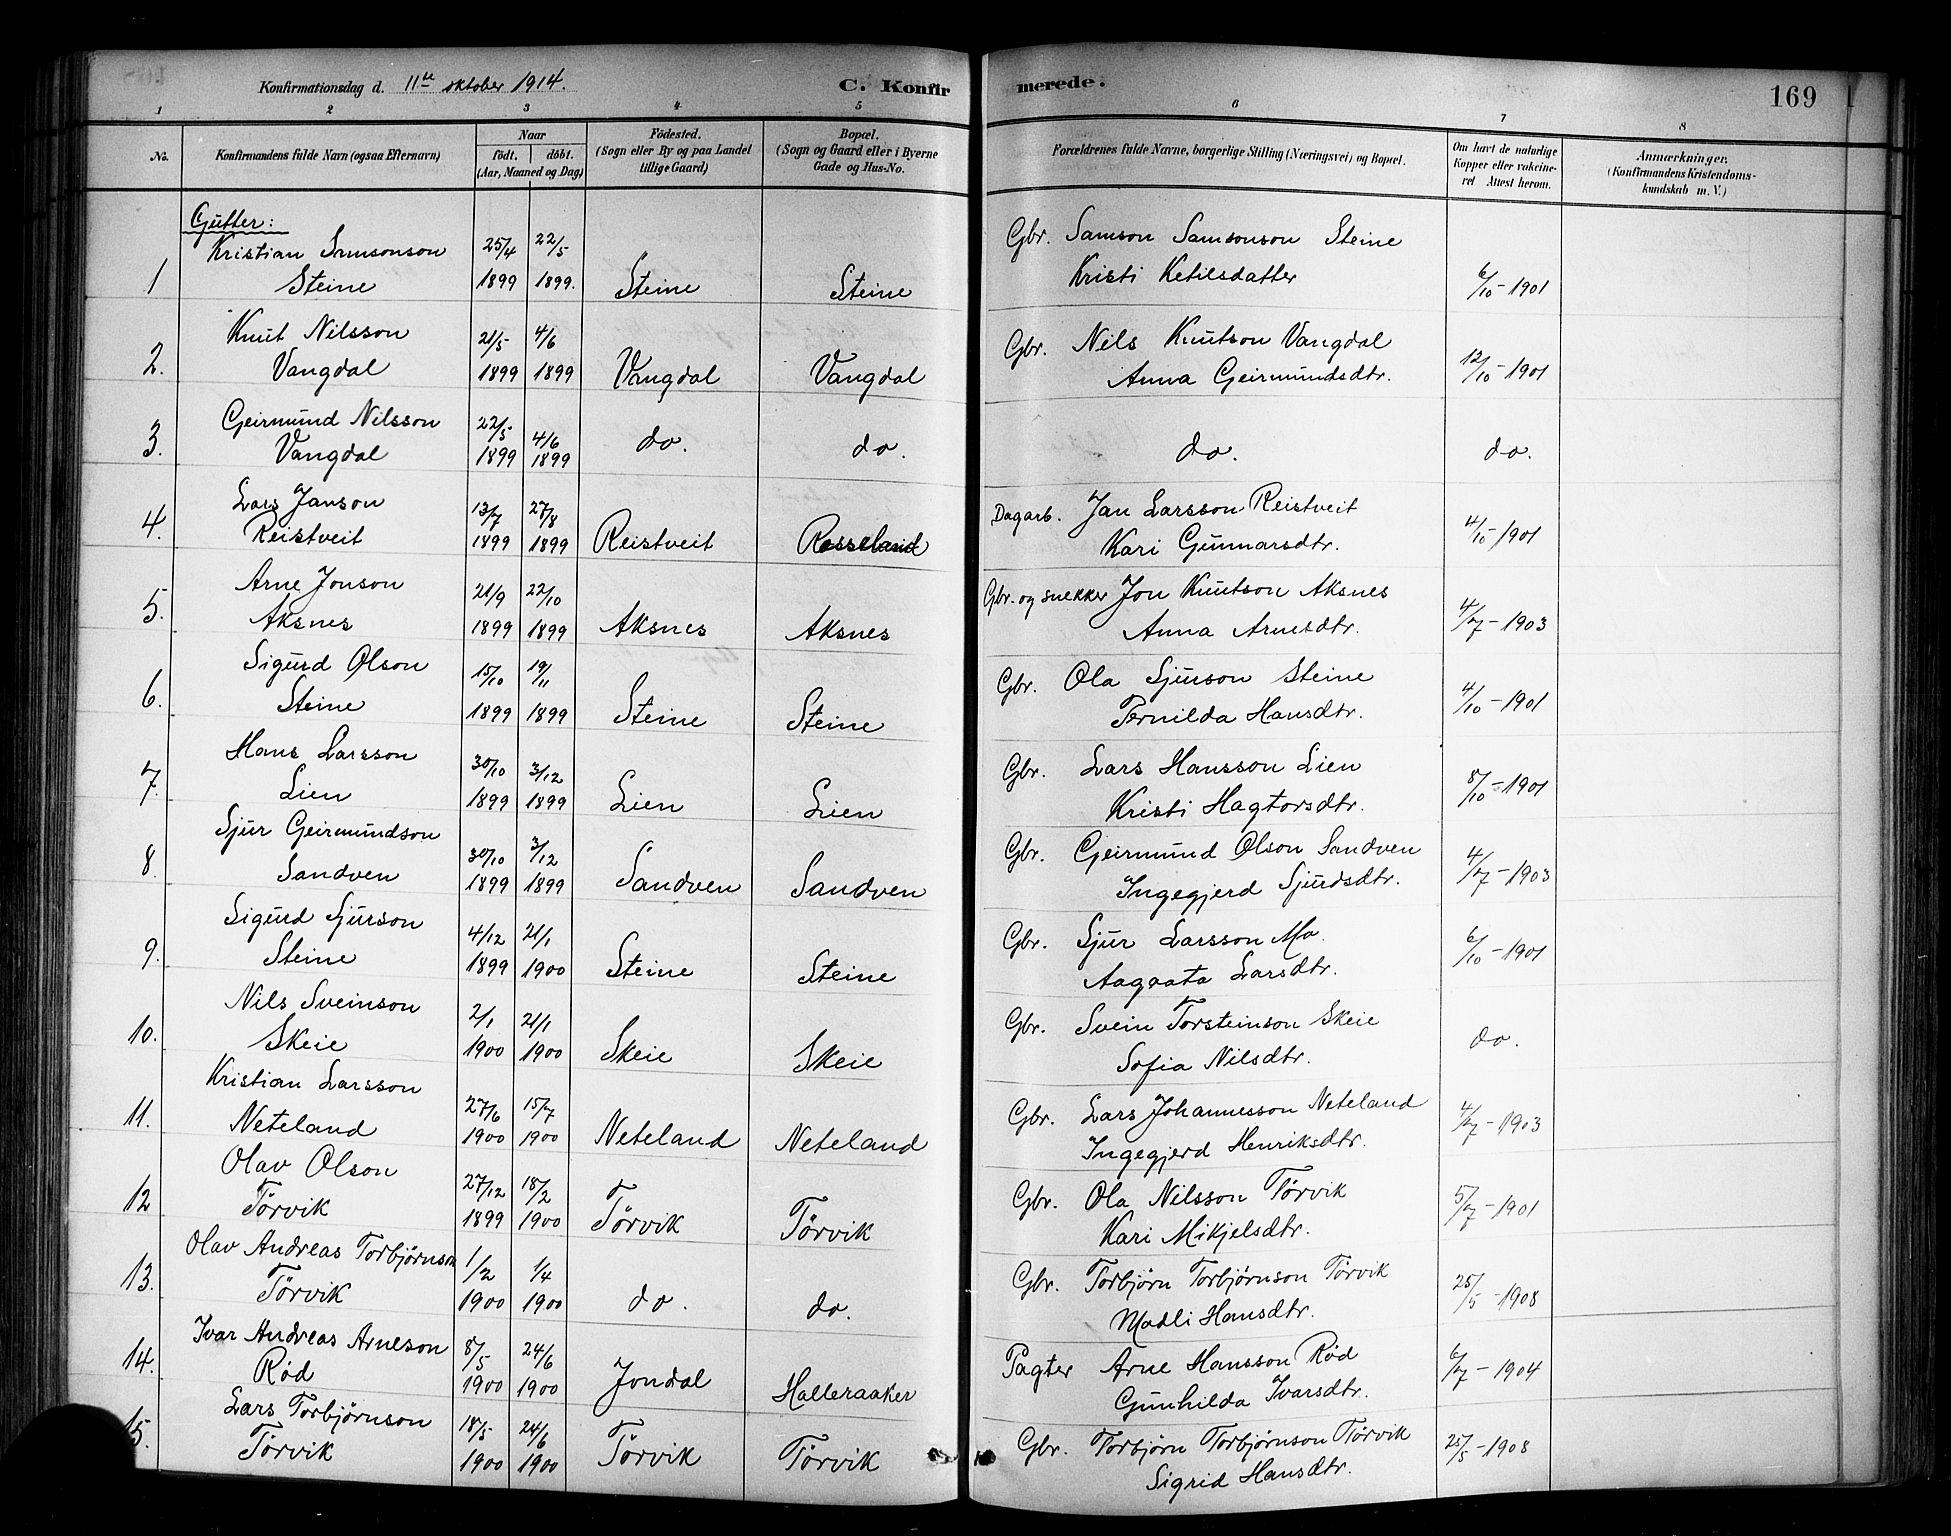 Konfirmationsdag d. 11te oktober 1914.
C. Konfirmerede.
169
1 2 3 4 5 6 7 8
No.
Konfirmandens fulde Navn (ogsaa Efternavn)
Naar
født. døbt.
(Aar, Maaned og Dag)
Fødested.
(Sogn eller By og paa Landet
tillige Gaard)
Bopæl.
(Sogn og Gaard eller i Byerne
Gade og Hus-No.
Forældrenes fulde Navne, borgerlige Stilling (Næringsvei) og Bopæl.
Om havt de naturlige
Kopper eller vakcine-
ret Attest herom.
Anmærkninger.
(Konfirmandens Kristendoms-
kundskab m. V.)
Gutter:
Kristian Samsonson 25/4 22/5 Gbr. Samson Samsonson Steine
1 Steine 1899 1899. Steine Steine Kristi Ketilsdatter 6/10-1901
Knut Nilsson 21/5 4/6 Gbr. Nils Knutson Vangdal
2. Vangdal 1899 1899 Vangdal Vangdal Anna Geirmundsdtr. 12/10-1901
Geirmund Nilsson 22/5 4/6
3. Vangdal 1899 1899 do. do. do. do.
Lars Janson 13/7 27/8 Dagarb. Jan Larsson Reistveit
4. Reistveit 1899 1899 Reistveit Rosseland Kari Gunnarsdtr. 4/10-1901
Arne Jonson 21/9 22/10 Gbr. og snekker Jon Knutson Aksnes
5. Aksnes 1899 1899 Aksnes Aksnes Anna Arnesdtr. 4/7-1903
Sigurd Olson 15/10 19/11 Gbr. Ola Sjurson Steine
6. Steine 1899 1899 Steine Steine Pernilda Hansdtr. 4/10-1901
Hans Larsson 30/10 3/12 Gbr. Lars Hansson Lien
7. Lien 1899 1899 Lien Lien Kristi Hagtorsdtr. 8/10-1901
Sjur Geirmundson 30/10 3/12 Gbr. Geirmund Olson Sandven
8. Sandven 1899 1899 Sandven Sandven Ingegjerd Sjurdsdtr. 4/7-1903
Sigurd Sjurson 4/12 21/1 Gbr. Sjur Larsson Mo.
9. Steine 1899 1900 Steine Steine Aagaata Larsdtr. 6/10-1901
Nils Sveinson 2/1 21/1 Gbr. Svein Torsteinson Skeie
10. Skeie 1900 1900 Skeie Skeie Sofia Nilsdtr. do.
Kristian Larsson 27/6 15/7 Gbr. Lars Johannesson Neteland
11. Neteland 1900 1900 Neteland Neteland Ingegjerd Henriksdtr. 4/7-1903
Olav Olson 27/12 18/2 Gbr. Ola Nilsson Tørvik
12 Tørvik 1899 1900 Tørvik Tørvik Kari Mikjelsdtr. 5/7-1901
Olav Andreas Torbjørnson 1/2 1/4 Gbr. Torbjørn Torbjørnson Tørvik
13. Tørvik 1900 1900 do. do. Madli Hansdtr. 25/5-1908
Ivar Andreas Arneson 8/5 24/6 Pagter Arne Hansson Rød
14. Rød 1900 1900 Jondal Halleraaker Gunhilda Ivarsdtr. 6/7-1904
Lars Torbjørnson 18/5 24/6 Gbr. Torbjørn Torbjørnson Tørvik
15. Tørvik 1900 1900 Tørvik Tørvik Sigrid Hansdtr. 25/5-1908